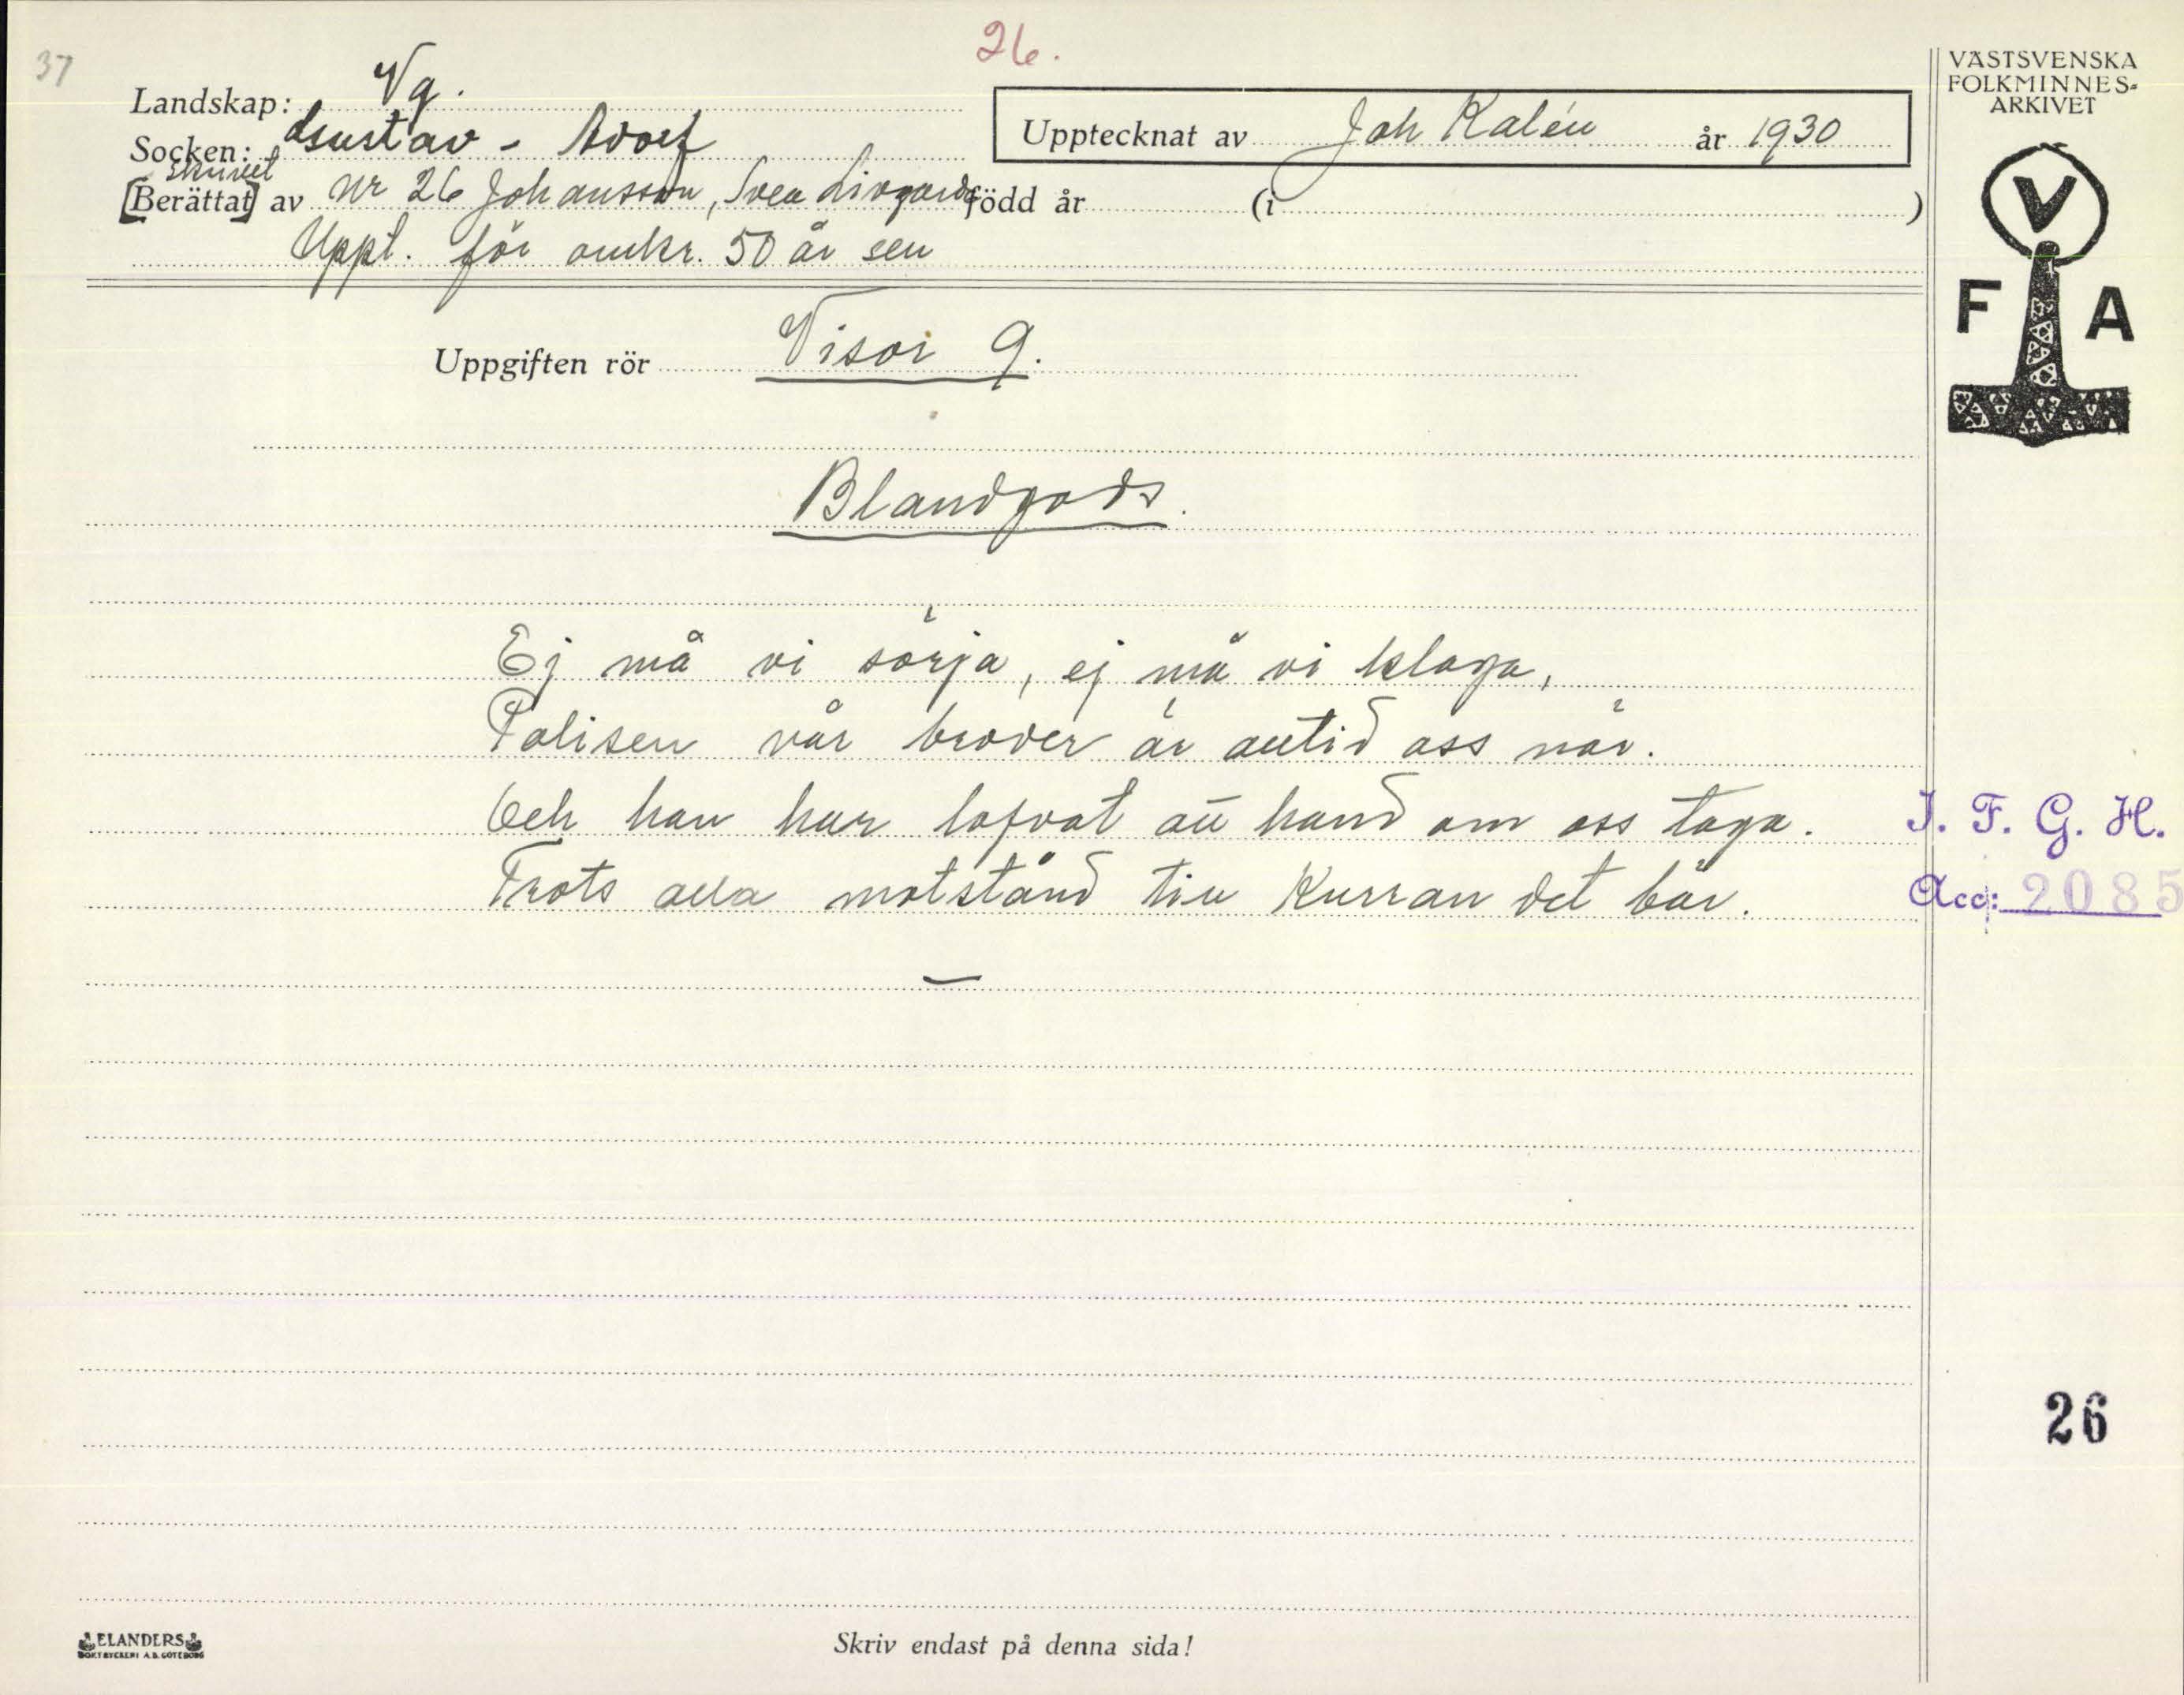 37
26.
Landskap: Vg.
Socken: Gustav - Adolf
Upptecknat av Joh Kalén år 1930
skrivet
[Berättat] av Nr 26 Johansson, Svea Livgarde född år (i )
Uppt. för omkr. 50 år sen
VÄSTSVENSKA
FOLKMINNES-
ARKIVET
V
F A
Uppgiften rör Visor 9.
Blandgods.
Ej må vi sörja, ej må vi klaga,
Polisen vår broder är alltid oss när.
Och han har lofvat att hand om oss taga.
Trots alla motstånd till Kurran det bär.
I. F. G. H.
Acc: 2085
26
ELANDERS
BOKTRYCKERI A.B. GÖTEBORG
Skriv endast på denna sida!